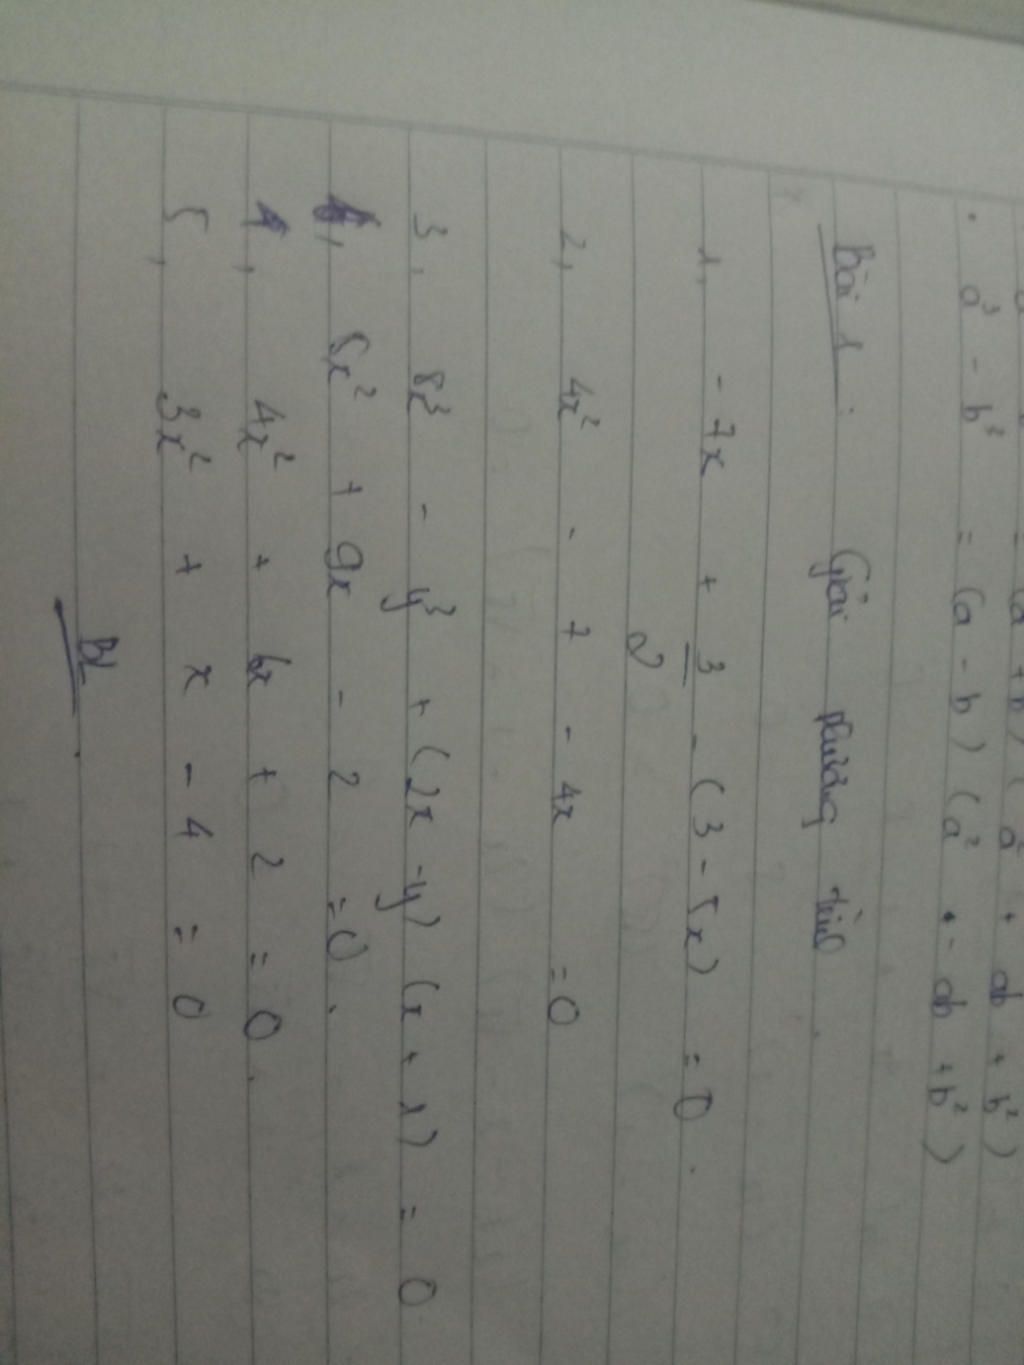 a³ - b³ = (a - b) (a² + - ab + b²)
Bài 1: Giải phương trình.
1, - 7x + 3/2 - (3 - 5x) = 0.
2, 4x² - 7 - 4x = 0
3, 8x³ - y³ + (2x - y) (x + 1) = 0
5x² + 9x - 2 = 0.
4, 4x² + 6x + 2 = 0.
5, 3x² + x - 4 = 0
BL